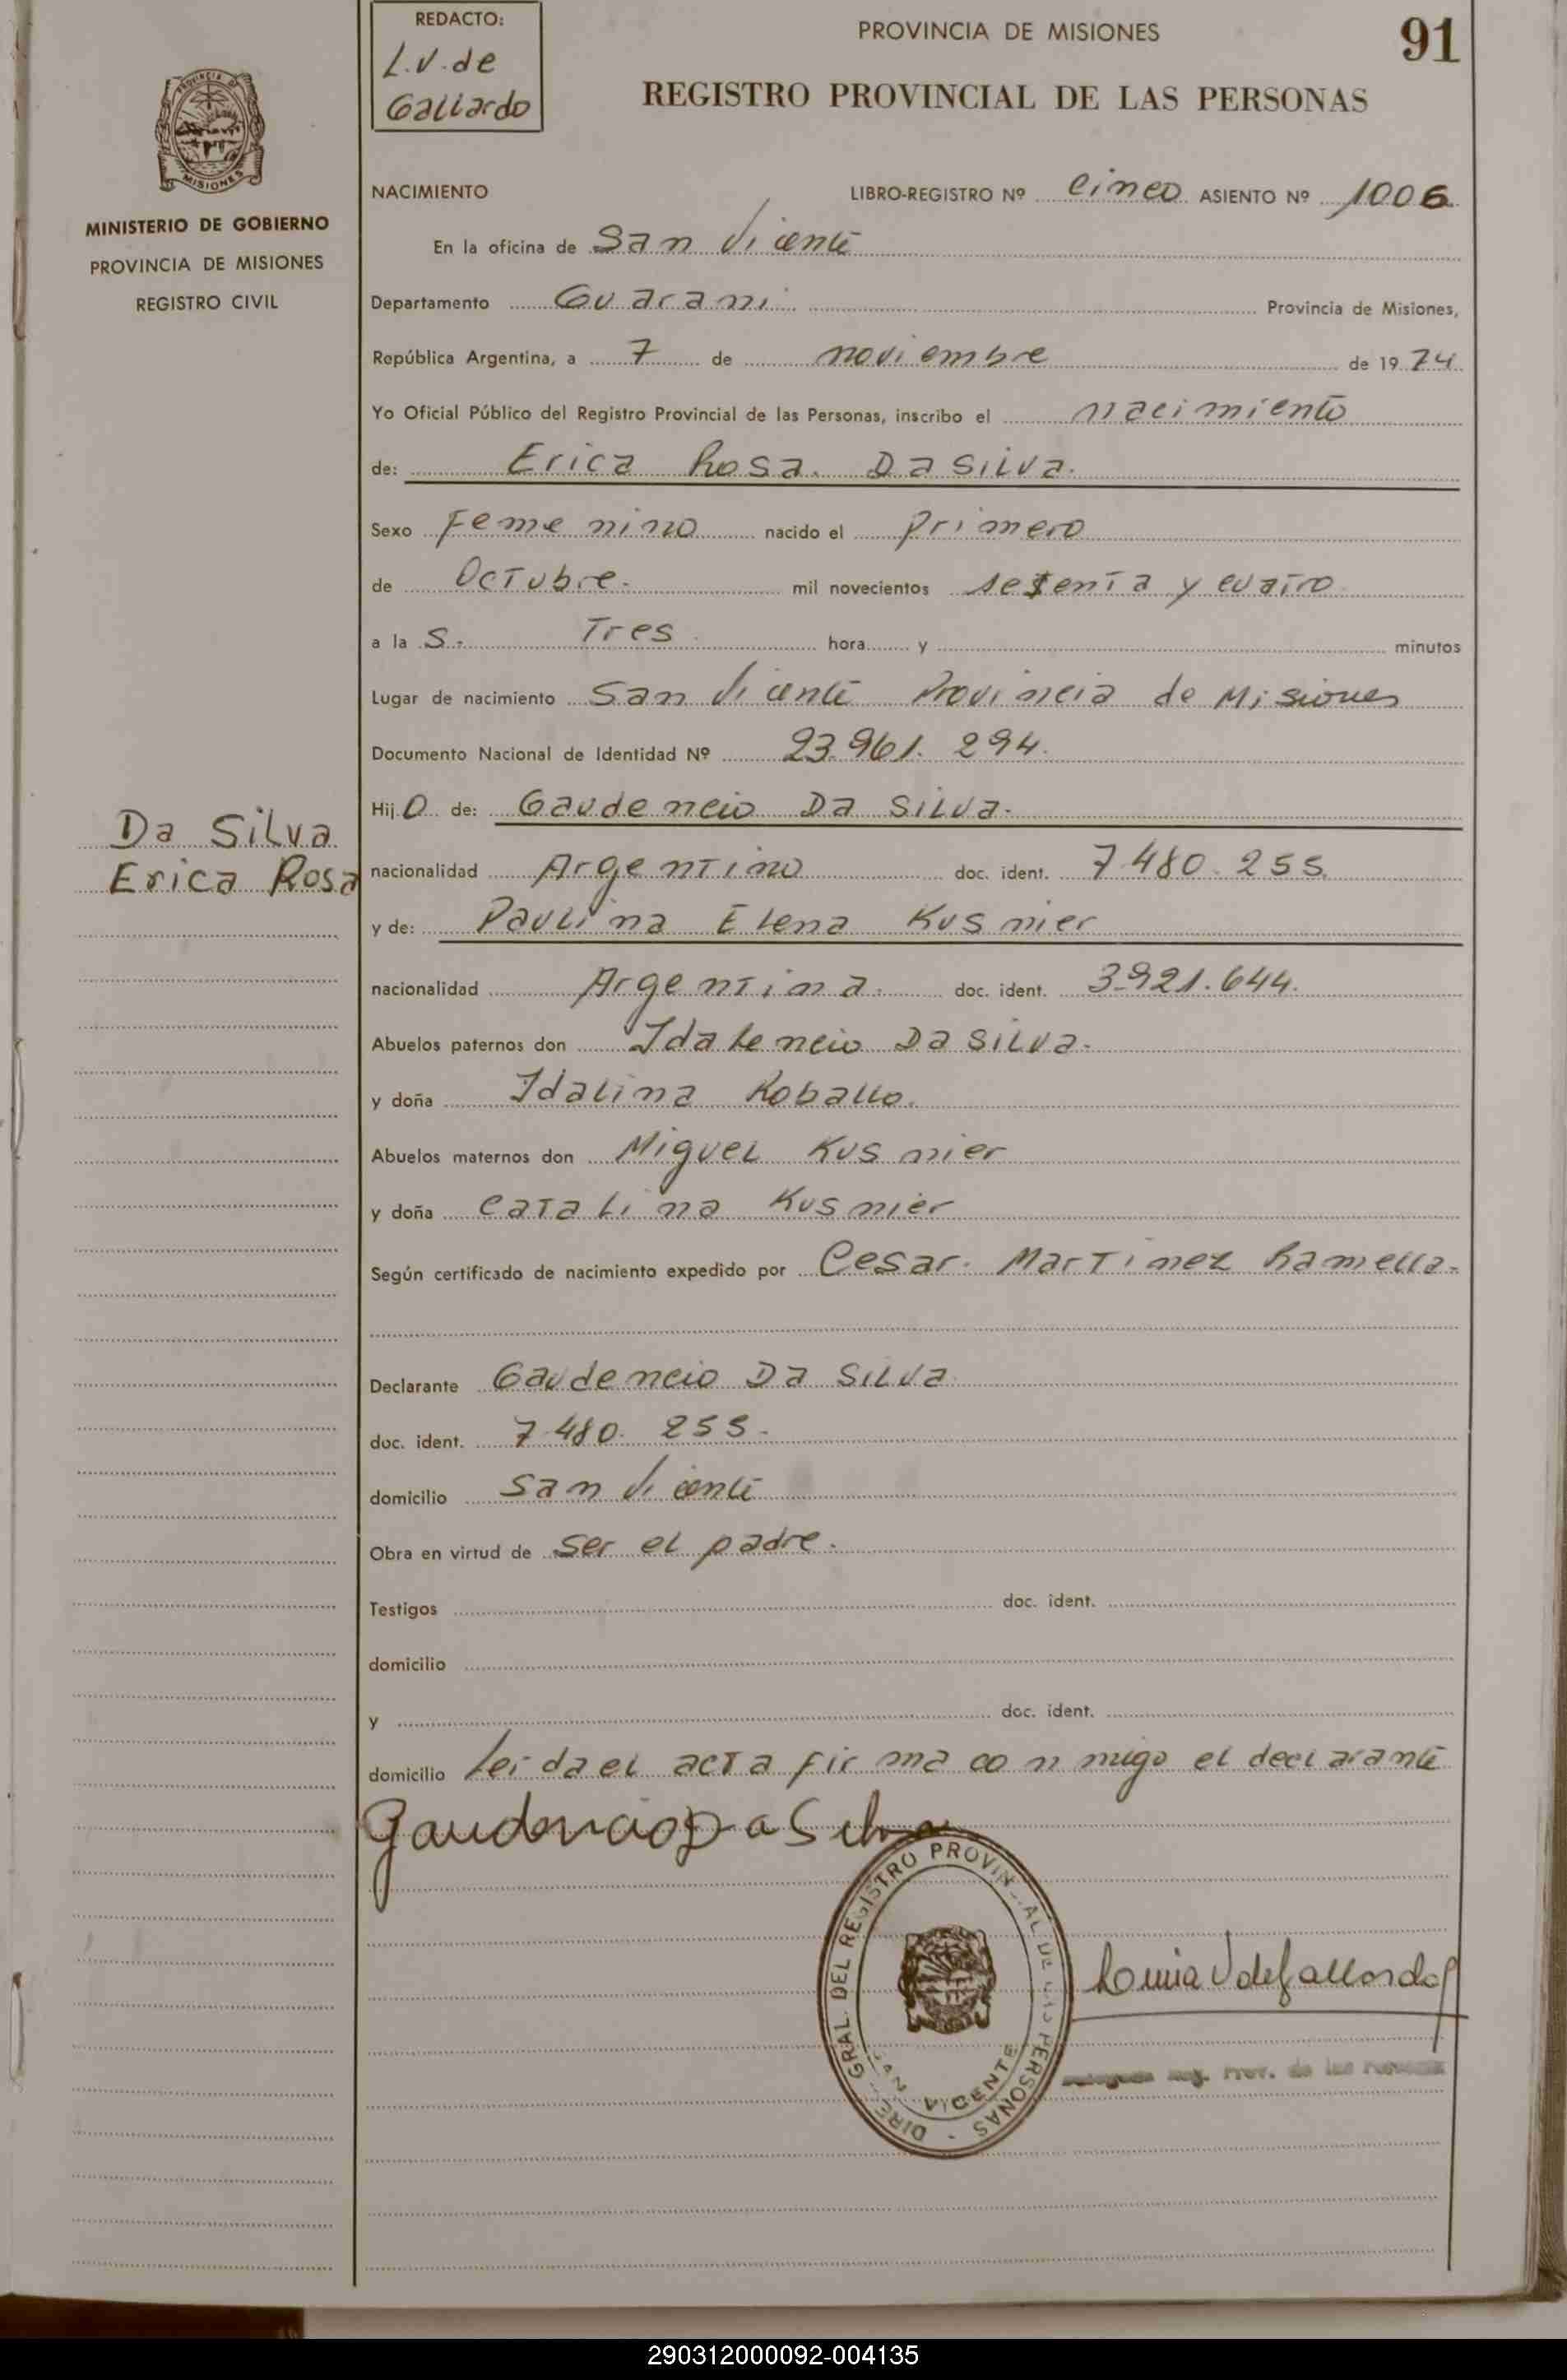 REDACTO:
L.V. de
Gallardo
PROVINCIA DE MISIONES
91
REGISTRO PROVINCIAL DE LAS PERSONAS
PROVINCIA DE
MISIONES
MINISTERIO DE GOBIERNO
PROVINCIA DE MISIONES
REGISTRO CIVIL
NACIMIENTO LIBRO-REGISTRO Nº Cinco ASIENTO Nº 1006
En la oficina de San Vicente
Departamento Guarani Provincia de Misiones,
República Argentina, a 7 de noviembre de 19 74
Yo Oficial Público del Registro Provincial de las Personas, inscribo el nacimiento
de: Erica Rosa Da Silva.
Sexo Femenino nacido el primero
de Octubre. mil novecientos setenta y cuatro
a la s. Tres hora y minutos
Lugar de nacimiento San Vicente Provincia de Misiones
Documento Nacional de Identidad Nº 23.961.294.
Hij o de: Gaudencio Da Silva.
Da Silva
Erica Rosa
nacionalidad Argentino doc. ident. 7.480.255.
y de: Paulina Elena Kusmier
nacionalidad Argentina. doc. ident. 3.921.644.
Abuelos paternos don Idalencio Da Silva.
y doña Idalina Roballo.
Abuelos maternos don Miguel Kusmier
y doña Catalina Kusmier
Según certificado de nacimiento expedido por Cesar Martinez Ramella.
Declarante Gaudencio Da Silva
doc. ident. 7.480.255.
domicilio San Vicente
Obra en virtud de ser el padre.
Testigos doc. ident.
domicilio
y doc. ident.
domicilio Leida el acta firma conmigo el declarante
Gaudencio Da Silva
DIRE. GRAL. DEL REGISTRO PROVINCIAL DE LAS PERSONAS
SAN VICENTE
V de Gallardo
Reg. Prov. de las Personas
290312000092-004135